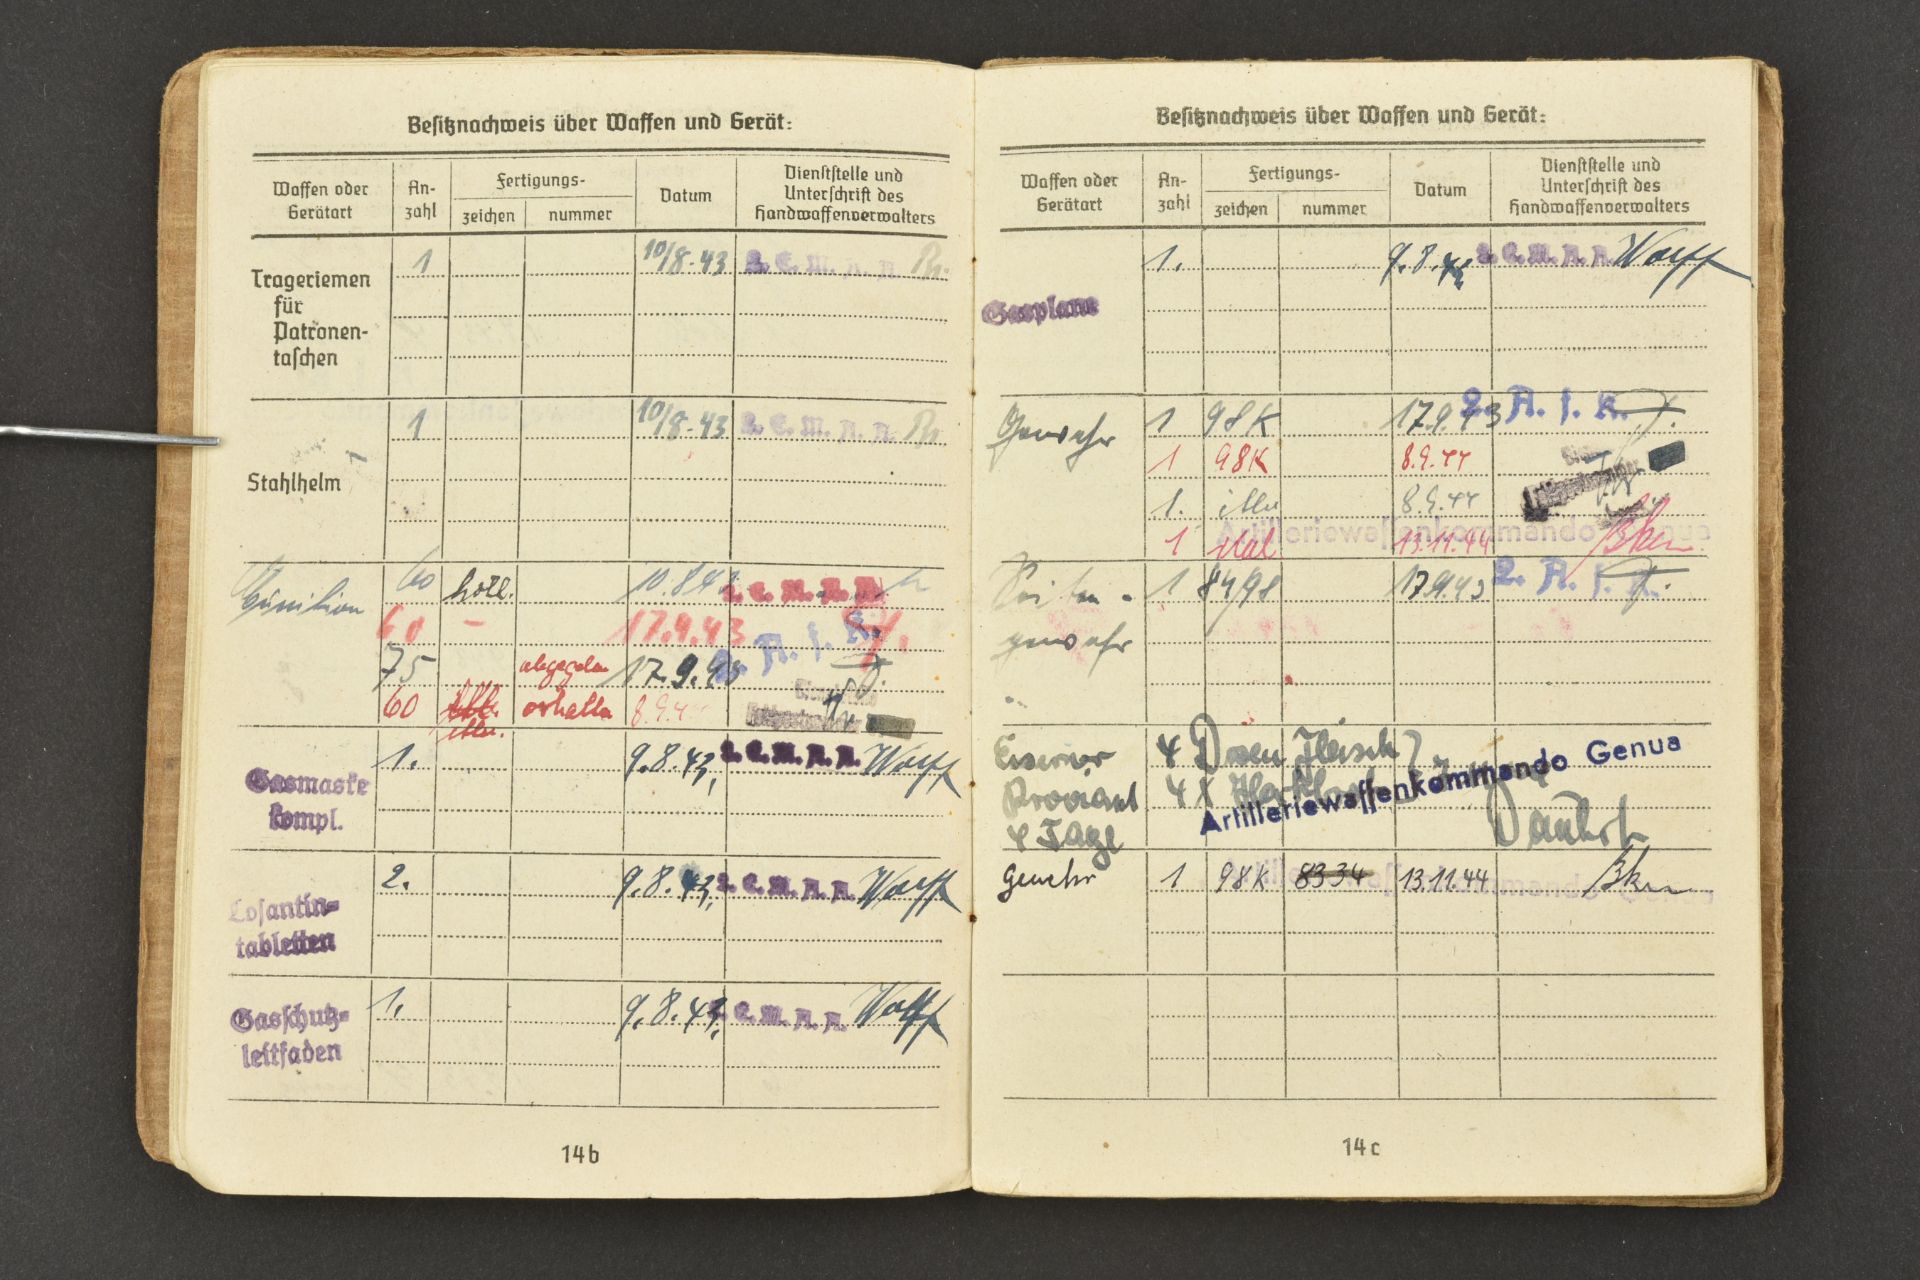 Besitznachweis über Waffen und Gerät:
Waffen oder Gerätart
An-zahl
Fertigungs-
zeichen
nummer
Datum
Dienststelle und Unterschrift des Handwaffenverwalters
Trageriemen für Patronen-taschen
1
10/8.43
2. E. M. A. A.
Stahlhelm
1
10/8.43
2. E. M. A. A.
Munition
60 holl. 10.8.43 2. E. M. A. A.
60 – 17.9.43
75 abgegeben 17.9.43 2. A. f. K.
60 erhalten 8.9.44
Gasmaske kompl.
1. 9.8.43. 2. E. M. A. A. Wolff
Losantin=tabletten
2. 9.8.43. 2. E. M. A. A. Wolff
Gasschutz=leitfaden
1. 9.8.43. 2. E. M. A. A. Wolff
14b
Besitznachweis über Waffen und Gerät:
Waffen oder Gerätart
An-zahl
Fertigungs-
zeichen
nummer
Datum
Dienststelle und Unterschrift des Handwaffenverwalters
Gasplane
1. 9.8.43. 2. E. M. A. A. Wolff
Gewehr
1 98K 17.9.43 2. A. f. K.
1 98K 8.9.44
1. 8.9.44
1 ital 13.11.44
Artilleriewaffenkommando Genua
Seiten-gewehr
1 84/98 17.9.43 2. A. f. K.
Eiserner Proviant 4 Tage
4 Dosen Fleisch
4 X
Artilleriewaffenkommando Genua
Gewehr 1 98K 8334 13.11.44
Artilleriewaffenkommando Genua
14c